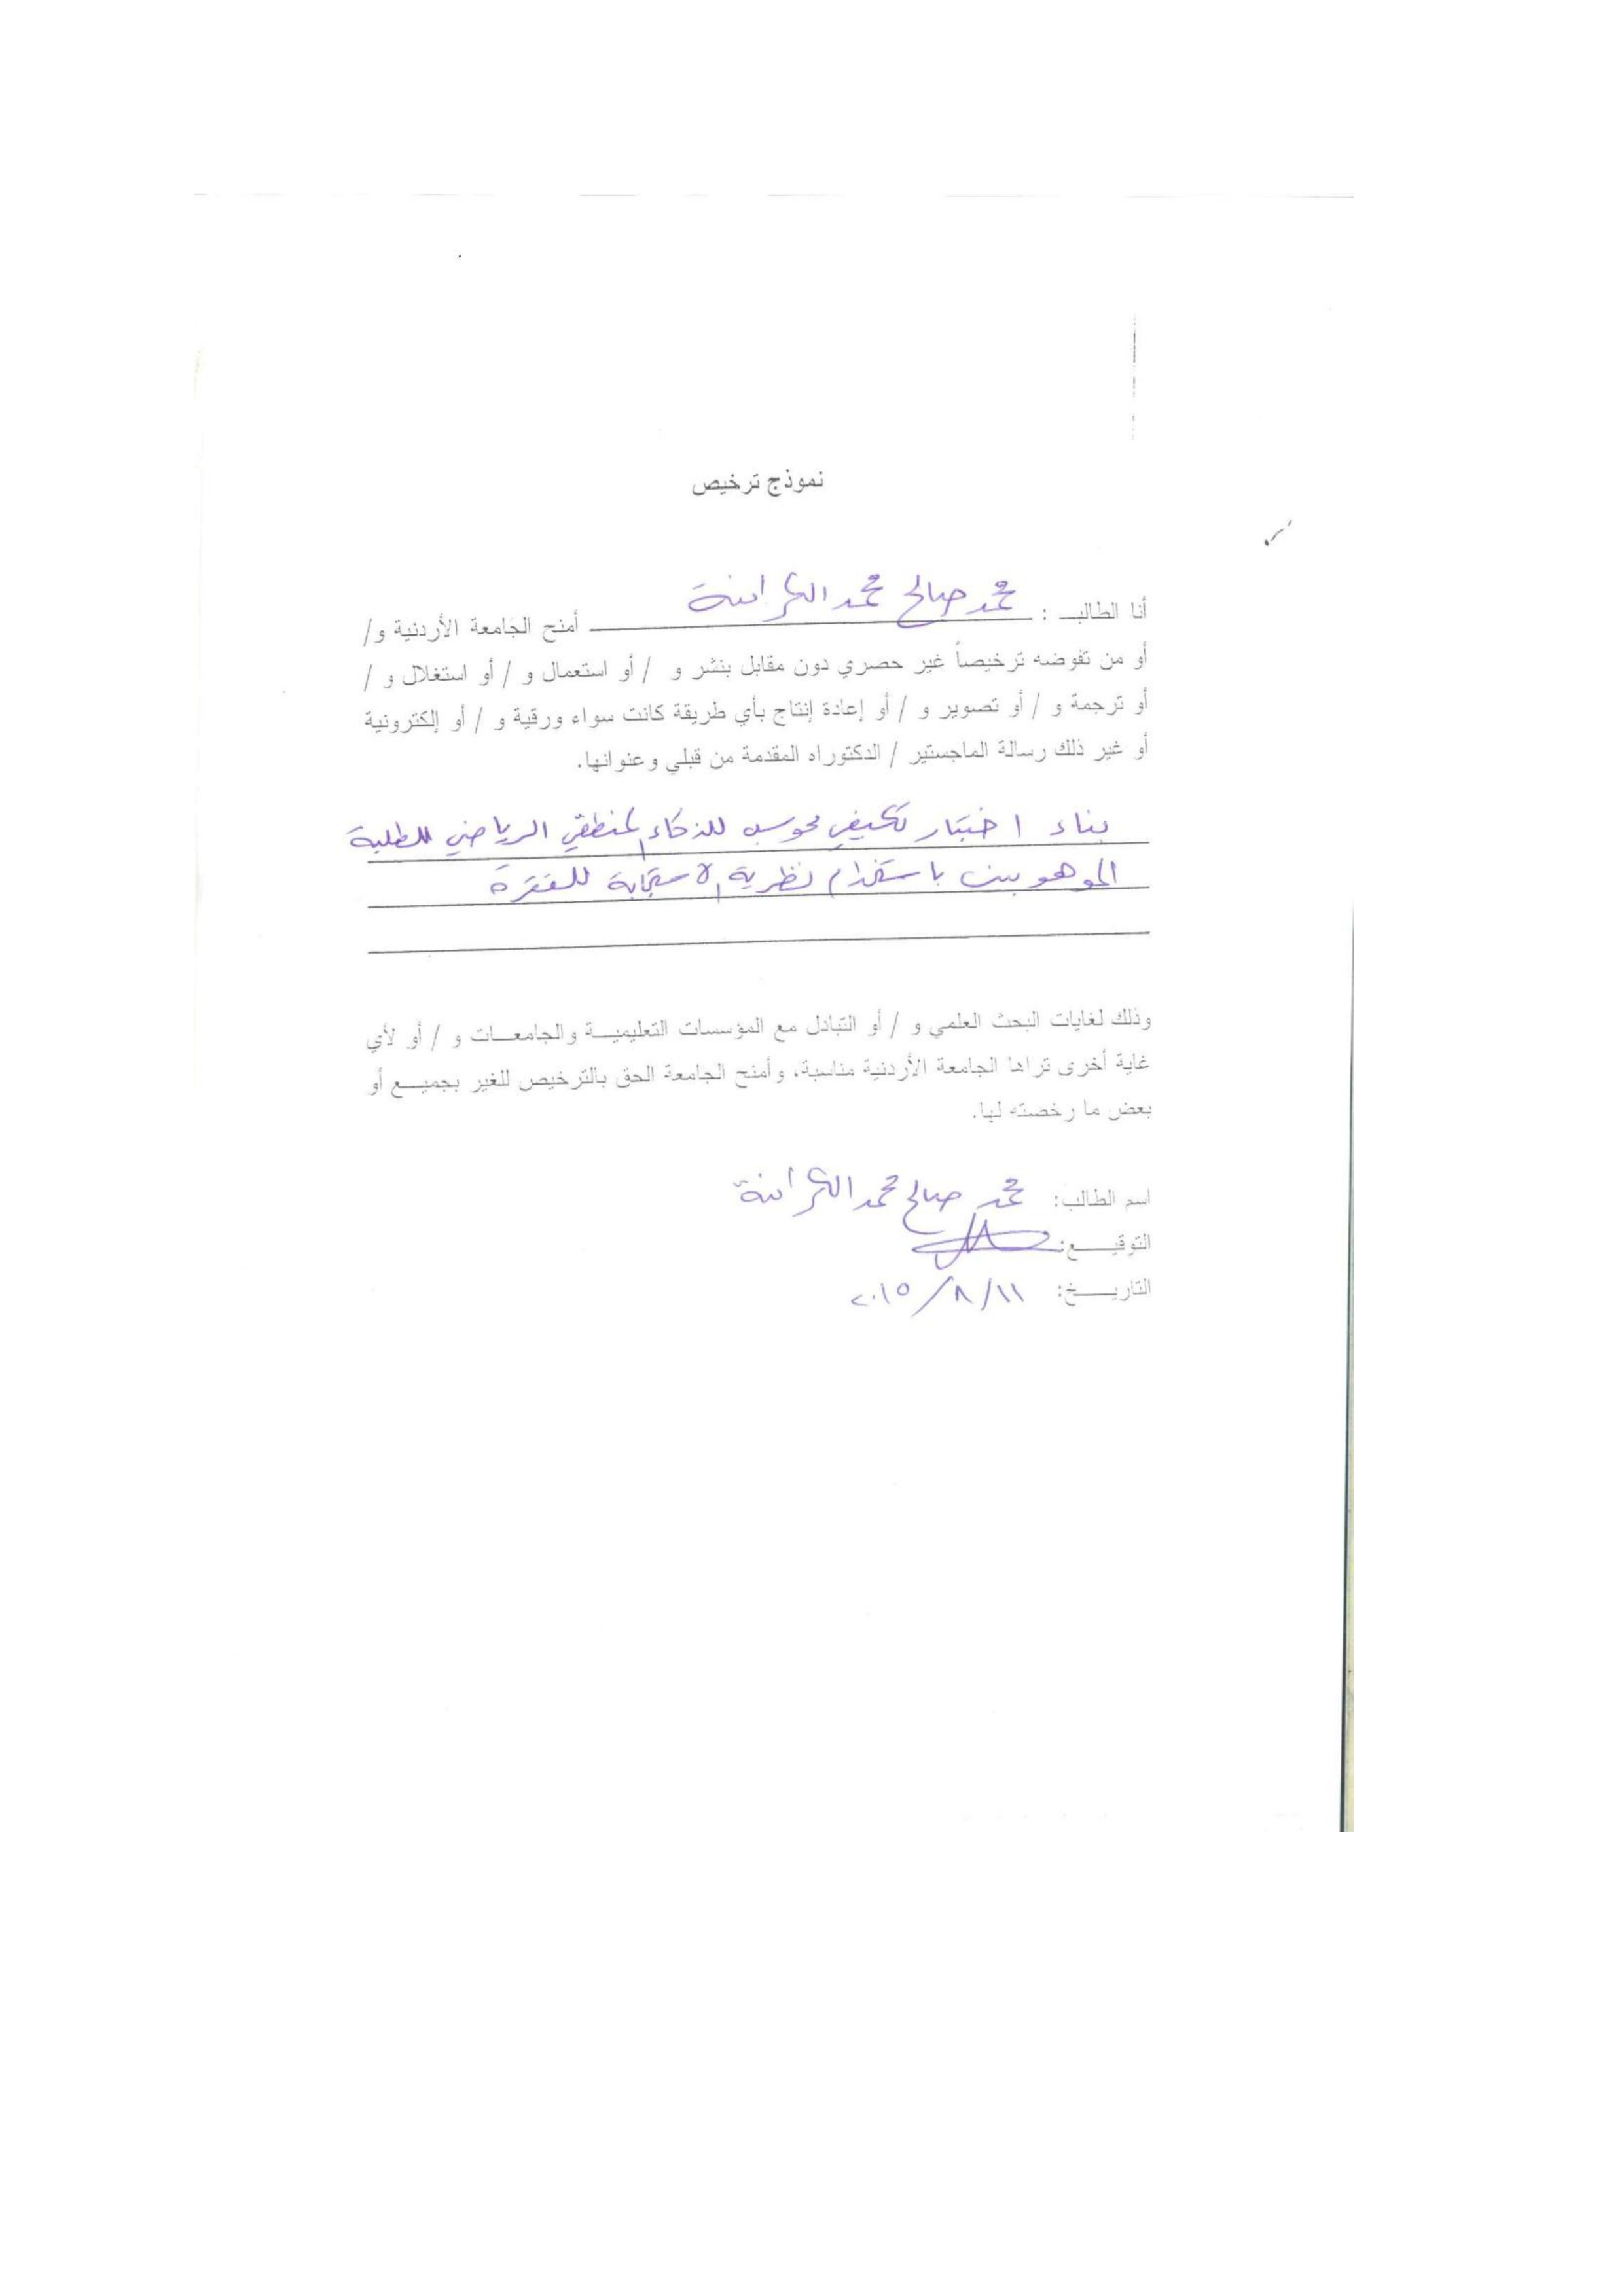 نموذج ترخيص
أنا الطالب : محمد صالح محمد الكراسنة أمنح الجامعة الأردنية و/
أو من تفوضه ترخيصاً غير حصري دون مقابل بنشر و / أو استعمال و / أو استغلال و /
أو ترجمة و / أو تصوير و / أو إعادة إنتاج بأي طريقة كانت سواء ورقية و / أو إلكترونية
أو غير ذلك رسالة الماجستير / الدكتوراه المقدمة من قبلي وعنوانها.
بناء اختبار تكيفي محوسب للذكاء المنطقي الرياضي للطلبة
الموهوبين باستخدام نظرية الاستجابة للفقرة
وذلك لغايات البحث العلمي و / أو التبادل مع المؤسسات التعليمية والجامعات و / أو لأي
غاية أخرى تراها الجامعة الأردنية مناسبة، وأمنح الجامعة الحق بالترخيص للغير بجميع أو
بعض ما رخصته لها.
اسم الطالب: محمد صالح محمد الكراسنة
التوقيع:
التاريخ: ١١/ ٨/ ٢٠١٥